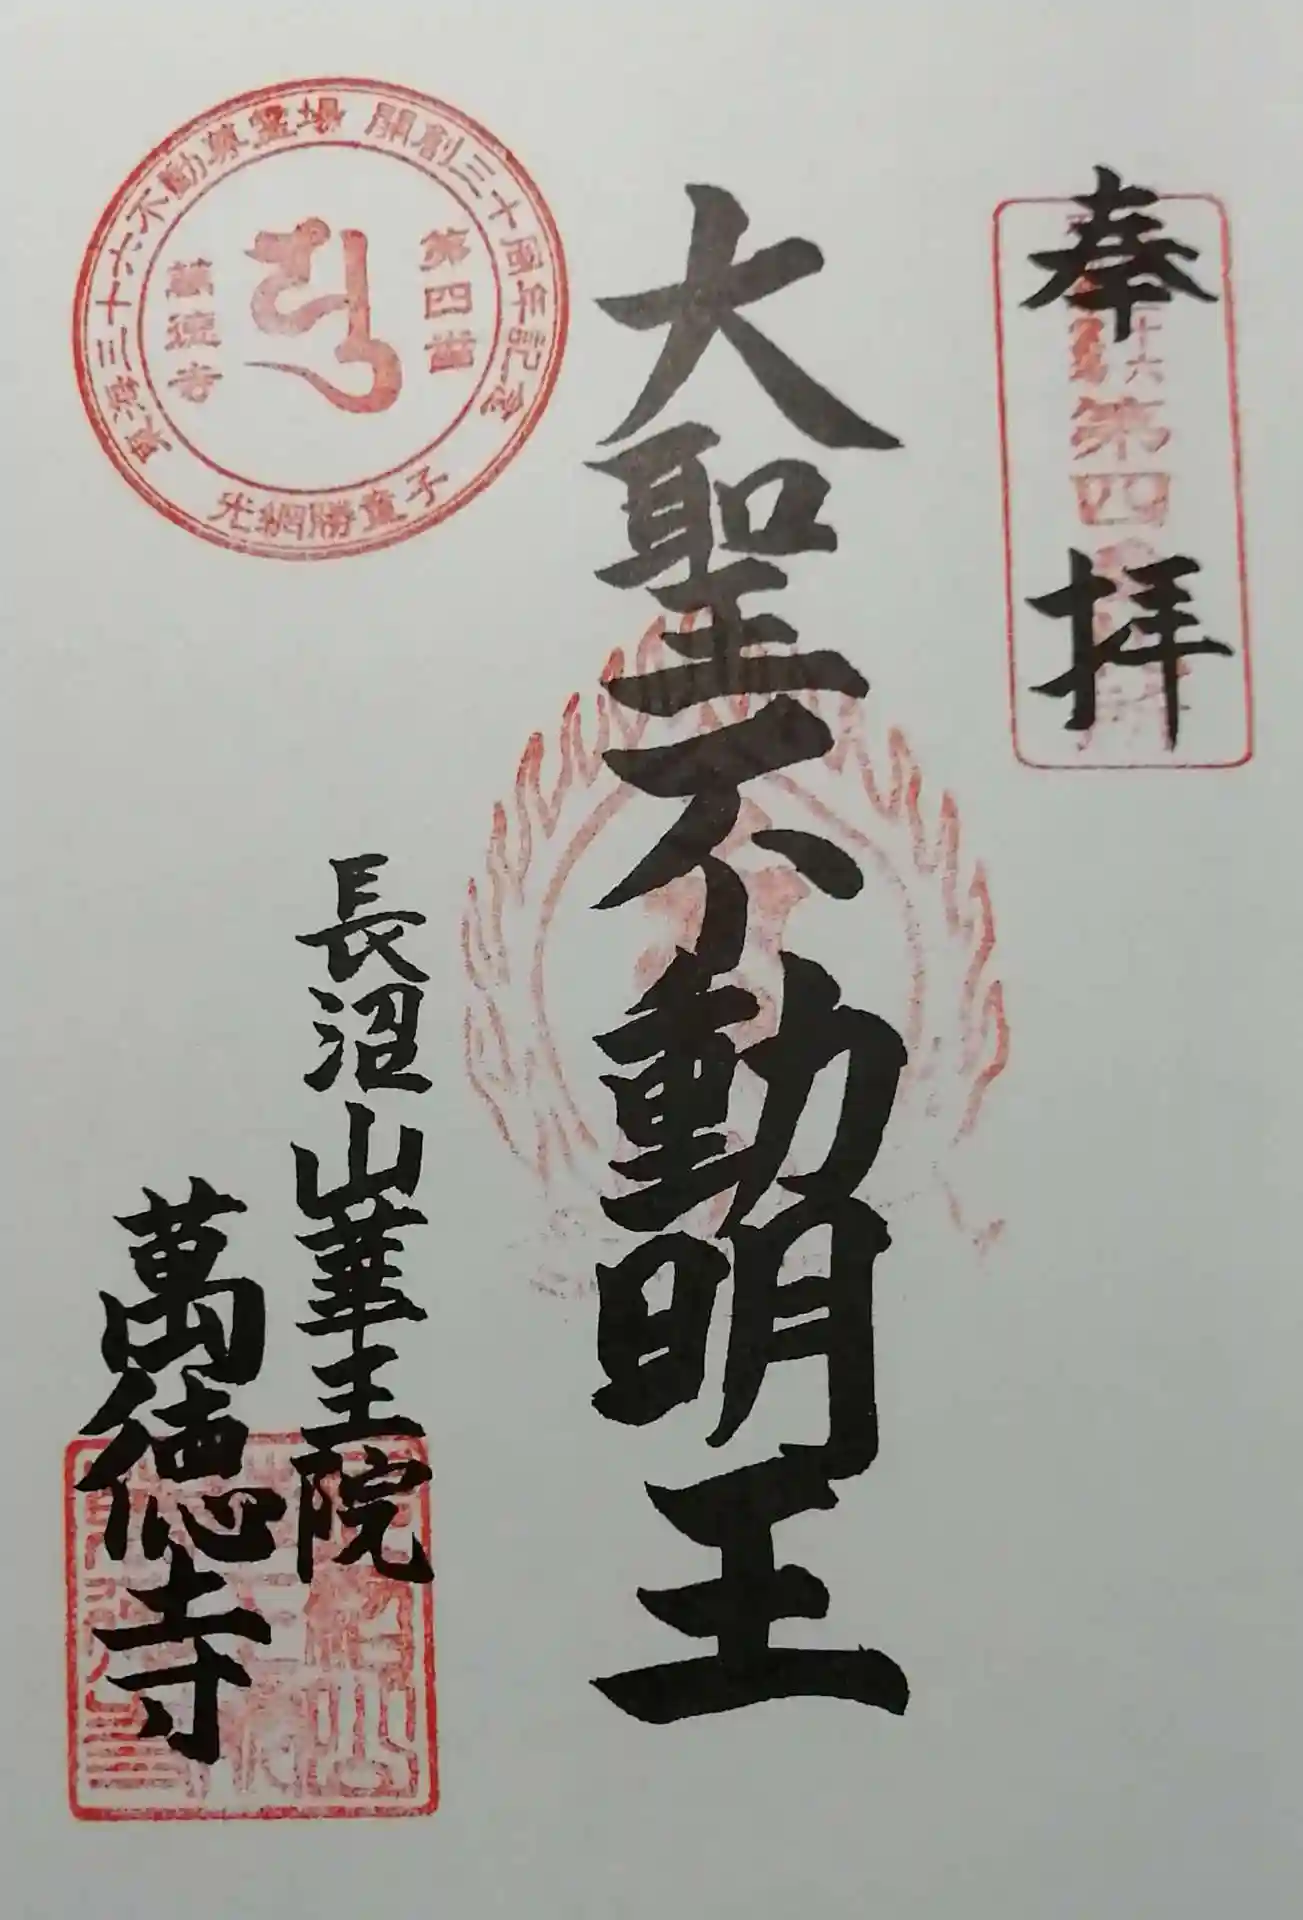 奉拝
十六
第四
大聖不動明王
長沼山華王院
萬徳寺
東海三十六不動尊霊場 開創三十周年記念
第四番
萬徳寺
光網勝童子